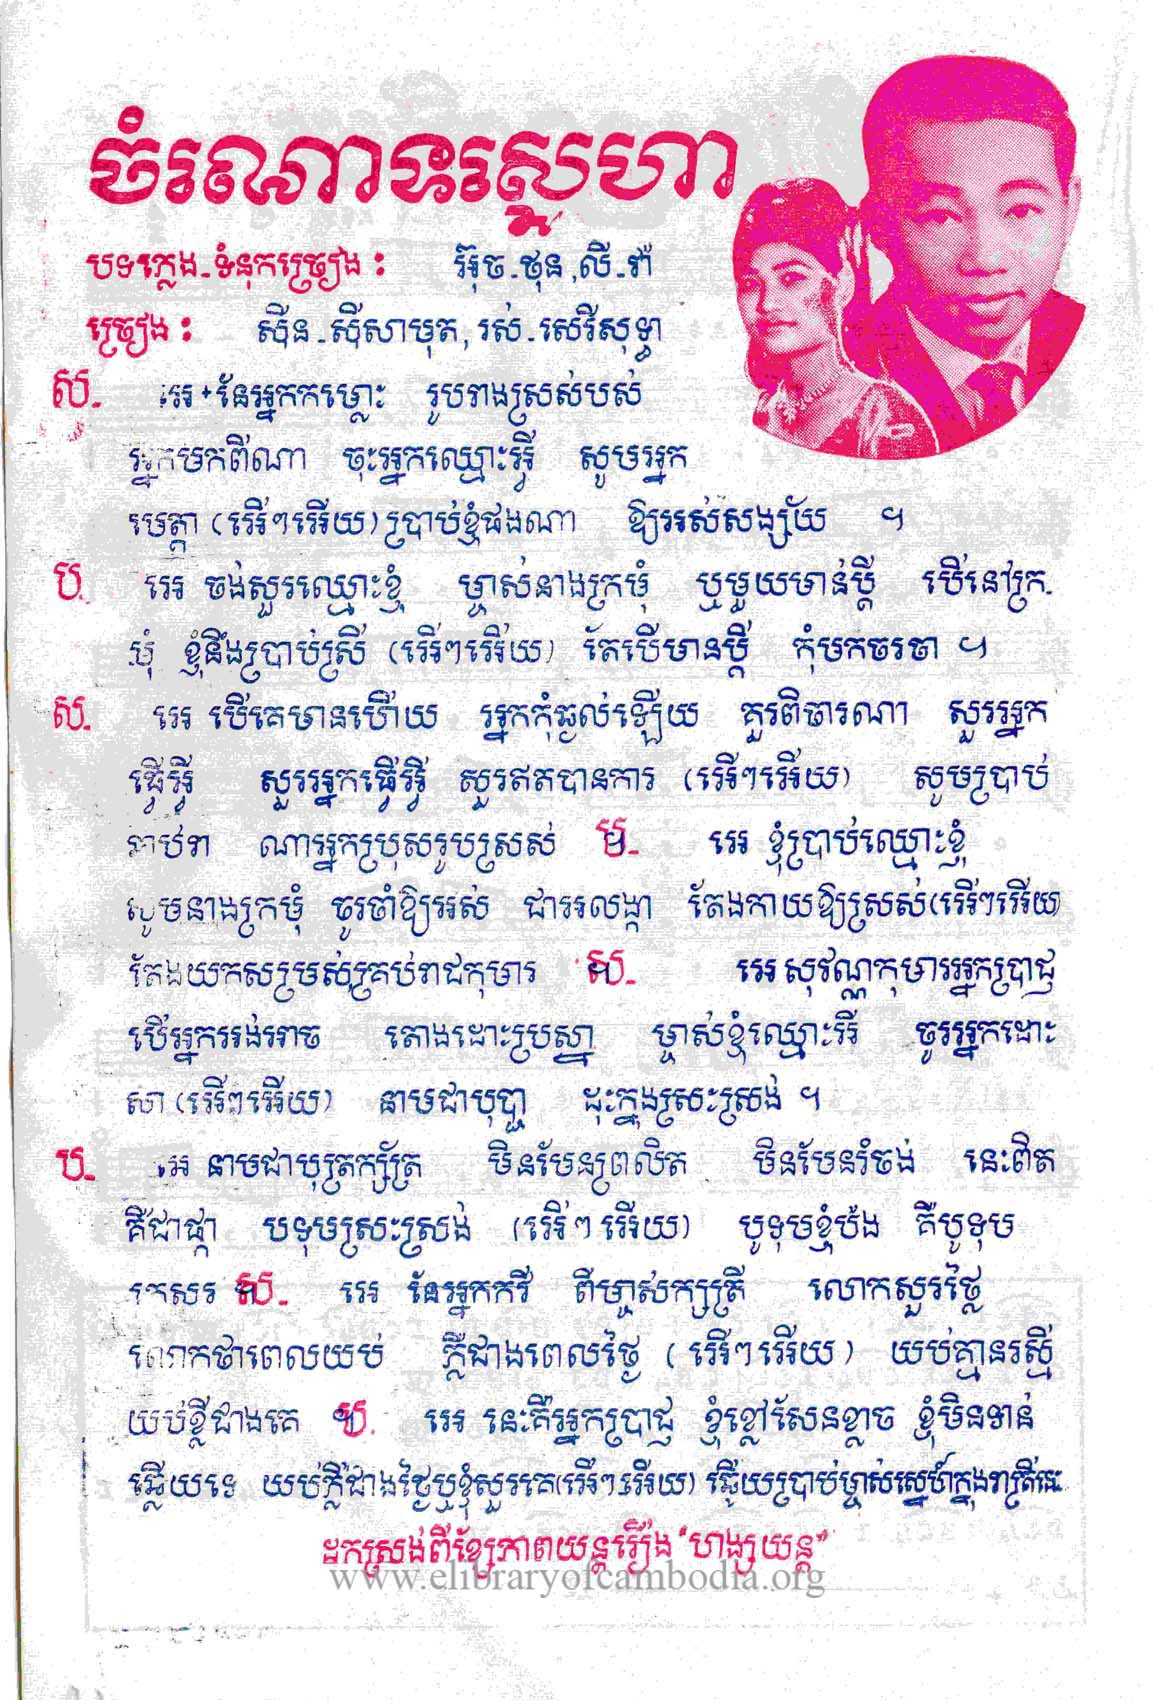 ចំរណោទស្នេហា
បទភ្លេង-ទំនុកច្រៀង : អ៊ុច-ថុន, លី-វ៉ា
ច្រៀង : ស៊ីន-ស៊ីសាមុត, រស់-សេរីសុទ្ធា
ស. អេ + នែអ្នកកម្លោះ រូបរាងស្រស់បស់
អ្នកមកពីណា ចុះអ្នកឈ្មោះអ្វី សូមអ្នក
មេត្តា (អើៗអើយ) ប្រាប់ខ្ញុំផងណា ឱ្យអស់សង្ស័យ ។
ប. អេ ចង់សួរឈ្មោះខ្ញុំ ម្ចាស់នាងក្រមុំ ឬមួយមាន់ប្តី បើនៅក្រ-
មុំ ខ្ញុំនឹងប្រាប់ស្រី (អើៗអើយ) តែបើមានប្តី កុំមកចរចា ។
ស. អេ បើគេមានហើយ អ្នកកុំឆ្ងល់ឡើយ គួរពិចារណា សួរអ្នក
ធ្វើអ្វី សួរអ្នកធ្វើអ្វី សួរឥតបានការ (អើៗអើយ) សូមប្រាប់
នាមវា ណាអ្នកប្រុសរូបស្រស់ ប. អេ ខ្ញុំប្រាប់ឈ្មោះខ្ញុំ
សូមនាងក្រមុំ ចូរចាំឱ្យអស់ ជាអលង្កា តែងកាយឱ្យស្រស់ (អើៗអើយ)
តែងយកសម្រស់គ្រប់រាជកុមារ ស. អេ សុវណ្ណកុមារអ្នកប្រាជ្ញ
បើអ្នកអង់អាច តោងដោះប្រស្នា ម្ចាស់ខ្ញុំឈ្មោះអី ចូរអ្នកដោះ
សា (អើៗអើយ) នាមជាបុប្ផា ដុះក្នុងស្រះស្រង់ ។
ប. អេ នាមជាបុត្រក្ស័ត្រ មិនមែនព្រលិត មិនមែនរំចង់ នេះពិត
គឺជាផ្កា បទុមស្រះស្រង់ (អើៗអើយ) បូទុមខ្ញុំប៉ង គឺបូទុម
កេសរ ស. អេ នែអ្នកកវី ពីម្ចាស់ក្សត្រី លោកសួរថ្លៃ
លោកថាពេលយប់ ភ្លឺជាងពេលថ្ងៃ (អើៗអើយ) យប់គ្មានរស្មី
យប់ខ្លីជាងគេ ប. អេ នេះគឺអ្នកប្រាជ្ញ ខ្ញុំខ្លៅសែនខ្លាច ខ្ញុំមិនទាន់
ឆ្លើយទេ យប់ភ្លឺជាងថ្ងៃឬខ្ញុំសួរគេ (អើៗអើយ) ឆ្លើយប្រាប់ម្ចាស់ស្នេហ៍ក្នុងរាត្រីនេះ
ដកស្រង់ពីខ្សែភាពយន្តរឿង "ហង្សយន្ត"
www.elibraryofcambodia.org